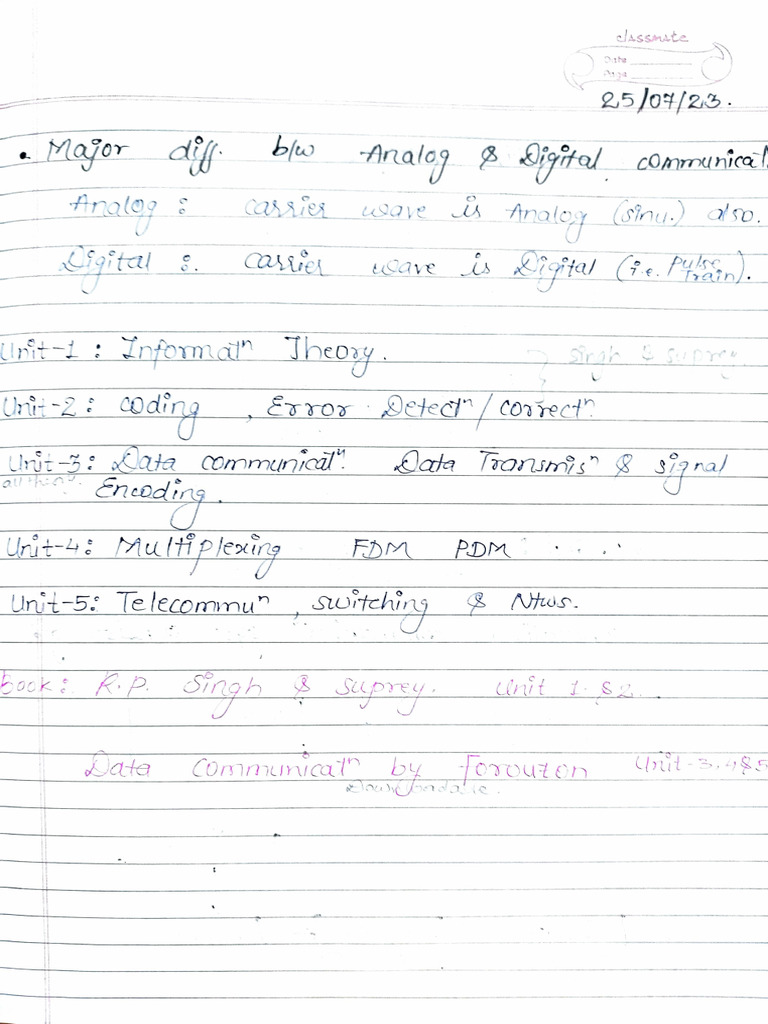 classmate
Date
Page
25/07/23.
• Major diff. b/w Analog & Digital communical
Analog : carrier wave is Analog (sinu.) also.
Digital :. carrier wave is Digital (i.e. Pulse Train).
Unit-1 : Informatⁿ Theory. Singh & suprey.
Unit-2 : coding , Error Detectⁿ/correctⁿ.
Unit-3: Data communicatⁿ. Data Transmisⁿ & signal
Encoding.
Unit-4: Multiplexing FDM PDM ....
Unit-5: Telecommuⁿ, switching & Ntws.
Book : R.P. Singh & suprey. Unit 1 & 2.
Data communicatⁿ by Forouzon Unit-3,4&5